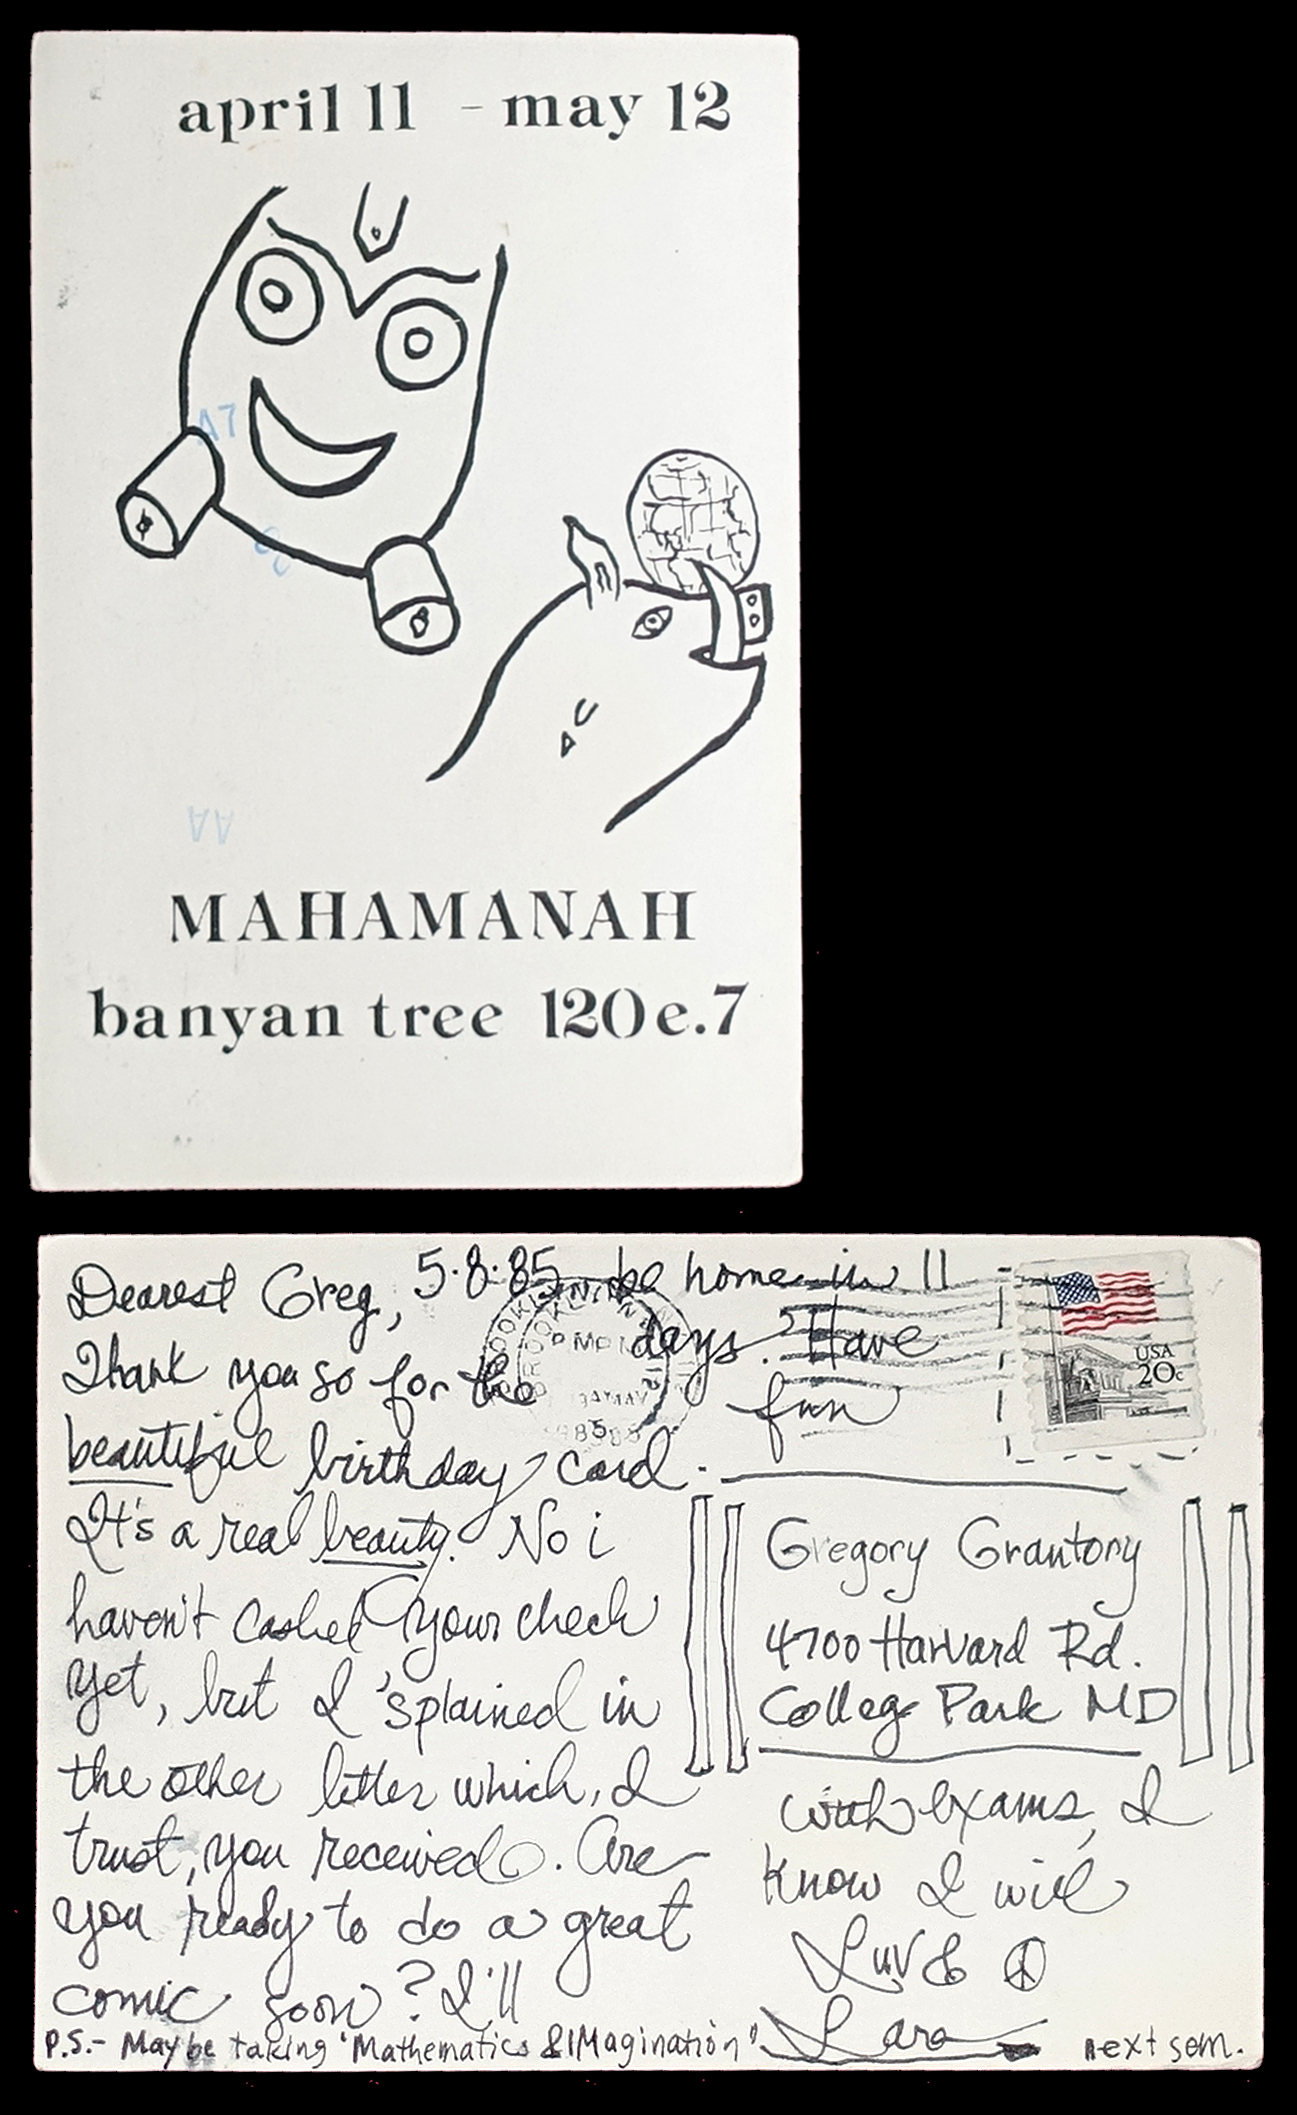 april 11 - may 12
A7
AA
MAHAMANAH
banyan tree 120 e. 7
Dearest Greg, 5·8·85
Thank you so for the
beautiful birthday card.
It's a real beauty. No i
haven't cashed your check
yet, but I 'splained in
the other letter which, I
trust, you received. Are
you ready to do a great
comic soon? I'll
be home in 11
days. Have
fun
with exams, I
know I will
Luv & ☮
Lara
P.S.- May be taking 'Mathematics & IMagination' next sem.
USA
20c
Gregory Grantory
4700 Harvard Rd.
College Park MD